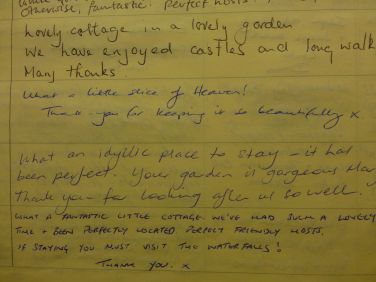 Otherwise, fantastic! Perfect hosts!
Lovely cottage in a lovely garden
We have enjoyed castles and long walk
Many thanks.
What a little slice of Heaven!
Thank-you for keeping it so beautifully x
What an idyllic place to stay - it has
been perfect. Your garden is gorgeous
Thank you for looking after us so well.
WHAT A FANTASTIC LITTLE COTTAGE. WE'VE HAD SUCH A LOVELY
TIME + BEEN PERFECTLY LOCATED. PERFECT FRIENDLY HOSTS.
IF STAYING YOU MUST VISIT THE WATERFALLS!
THANK YOU. X